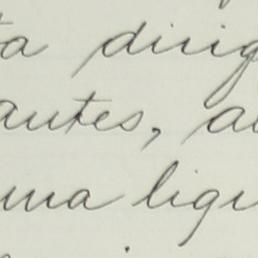 ta dirig
antes, a
uma ligu